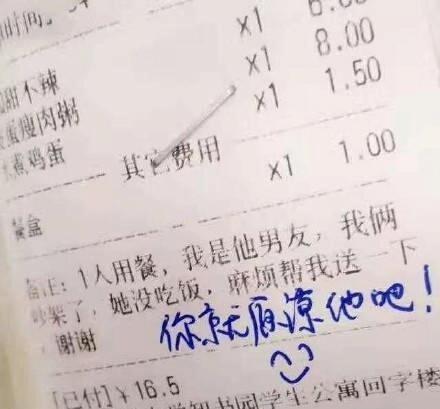 ×1
×1 8.00
甜不辣 ×1 1.50
蛋瘦肉粥
煮鸡蛋
其它费用
餐盒 ×1 1.00
备注: 1人用餐, 我是他男友, 我俩
吵架了, 她没吃饭, 麻烦帮我送一下
, 谢谢
你就原谅他吧!
[已付]¥16.5
书园学生公寓回字楼